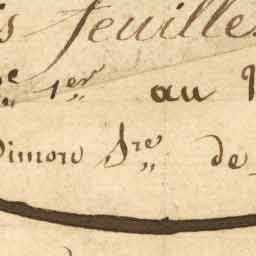 is feuille
e 1er au
Dimore Sre de